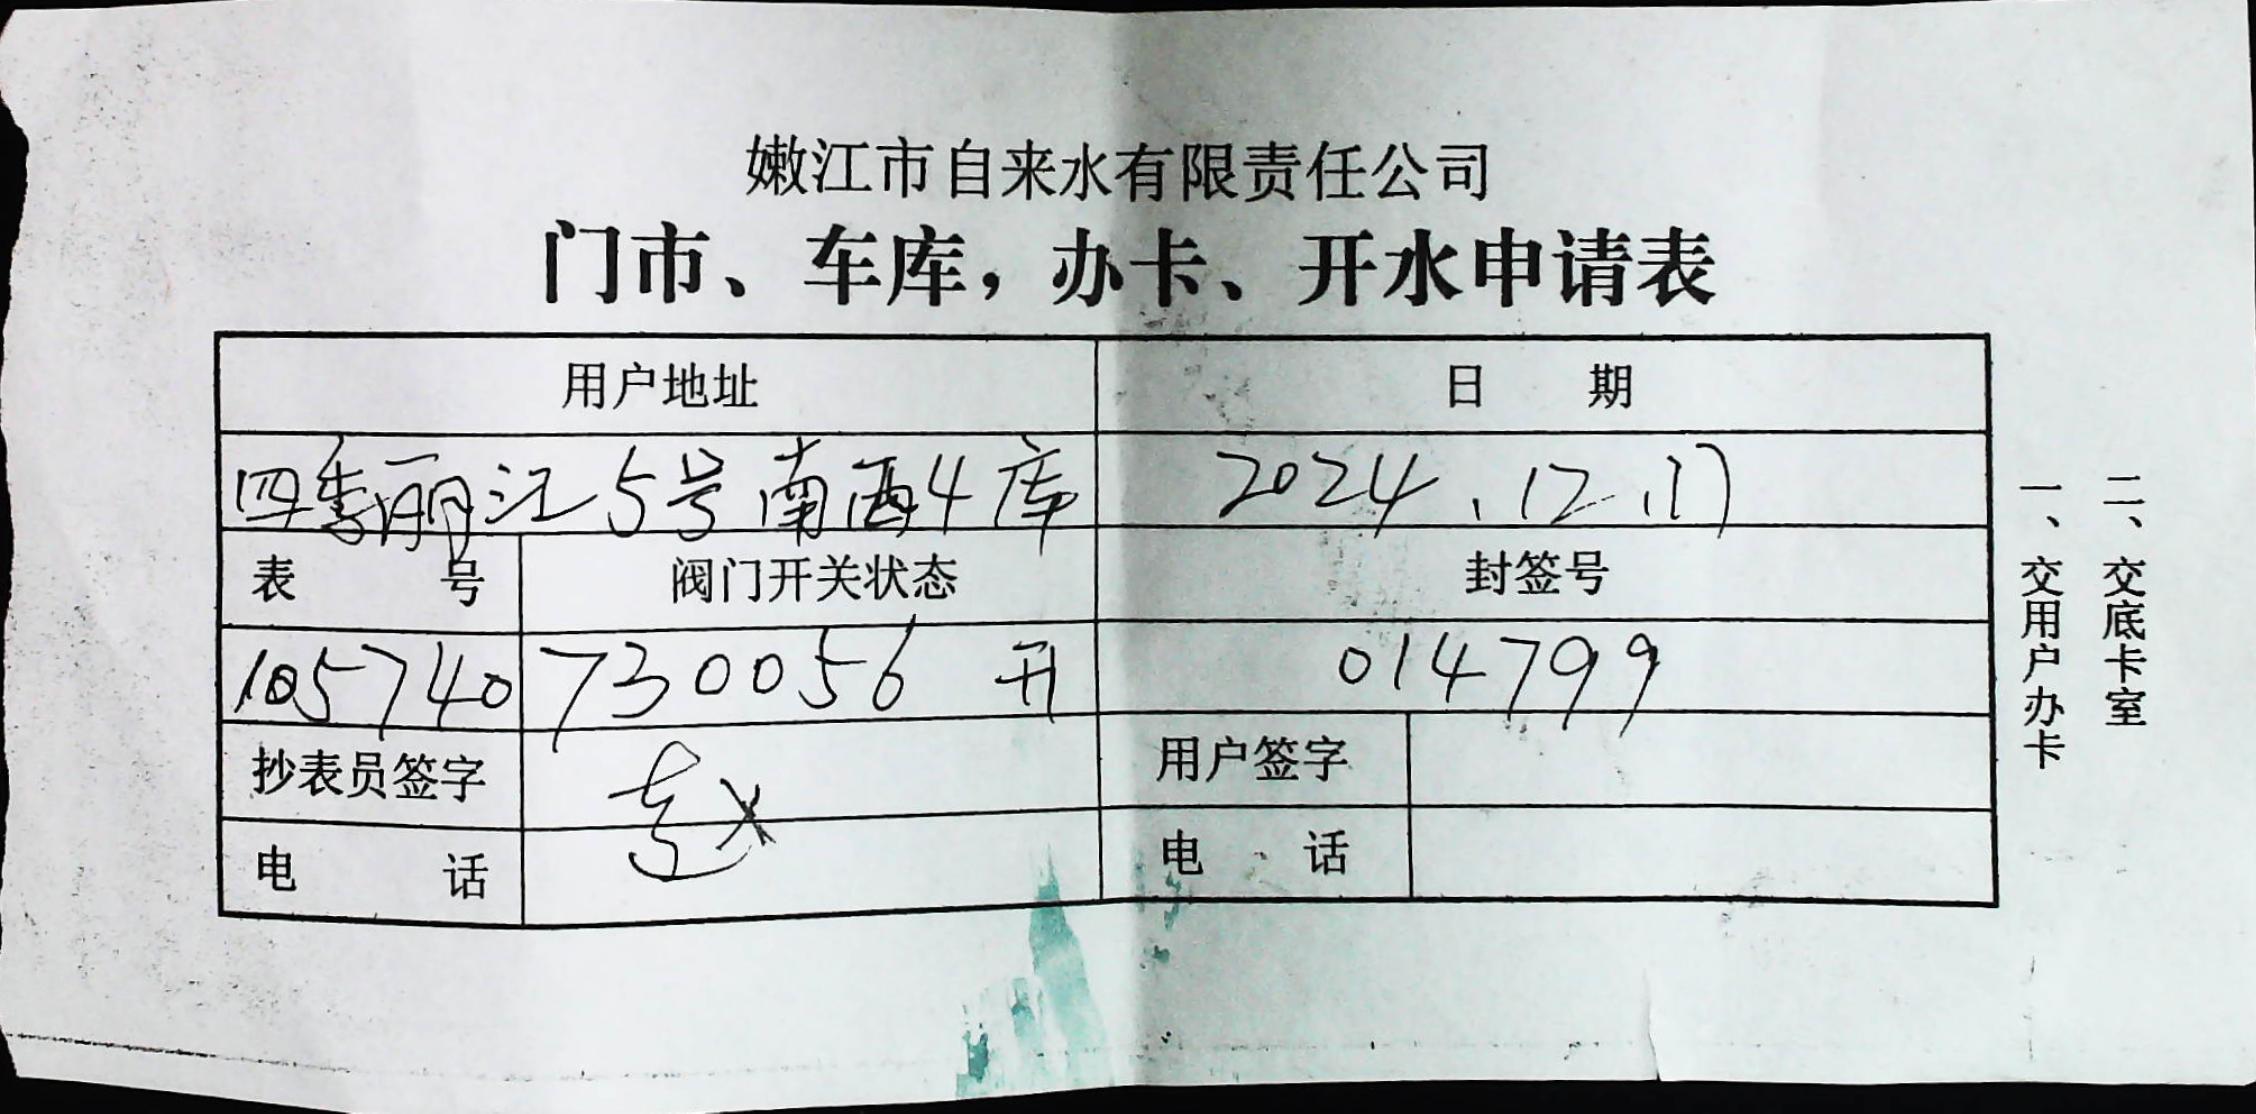 嫩江市自来水有限责任公司
门市、车库，办卡、开水申请表
用户地址 日期
四季丽江5号南西4库 2024.12.17
表号 阀门开关状态 封签号
105740 730056 开 014799
抄表员签字 用户签字
电话 电话
一、交用户办卡
二、交底卡室